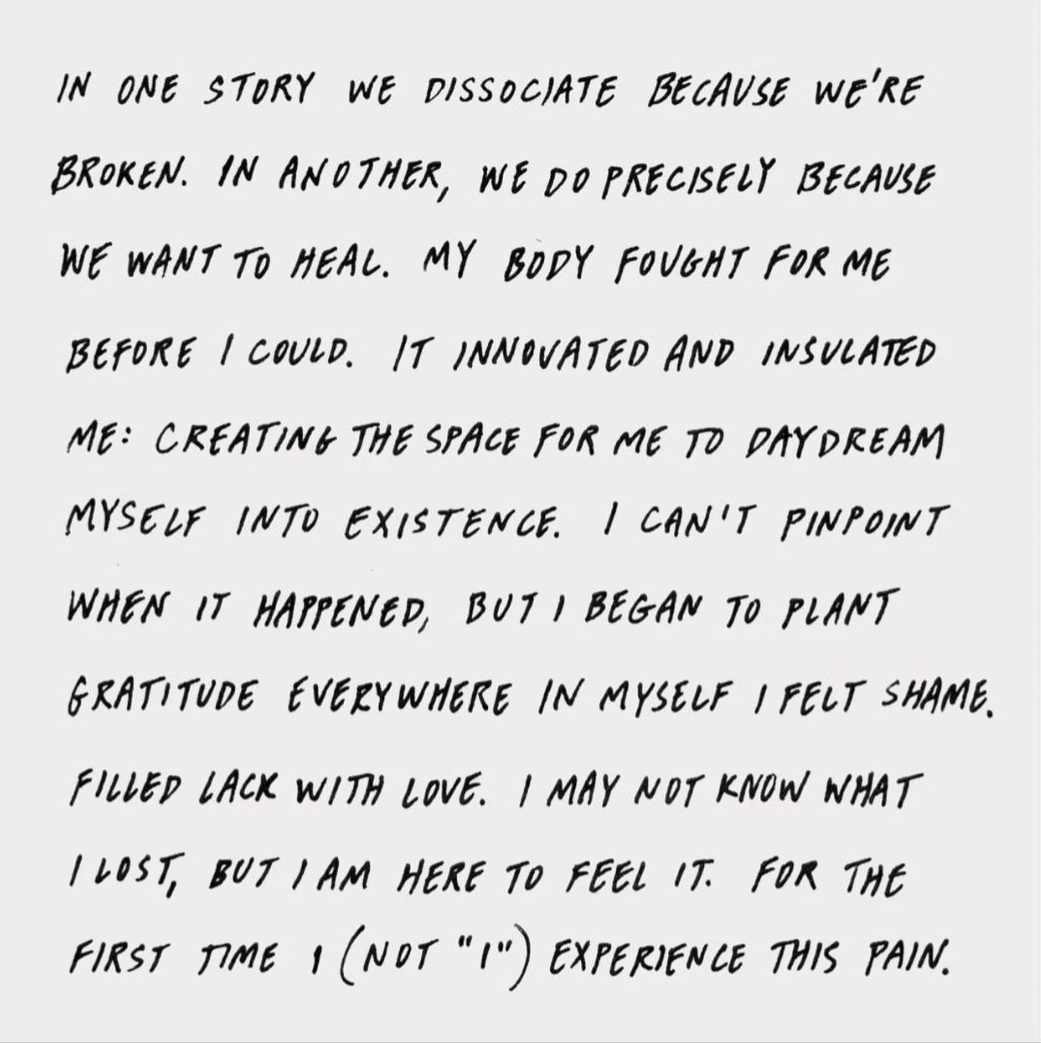 IN ONE STORY WE DISSOCIATE BECAUSE WE'RE
BROKEN. IN ANOTHER, WE DO PRECISELY BECAUSE
WE WANT TO HEAL. MY BODY FOUGHT FOR ME
BEFORE I COULD. IT INNOVATED AND INSULATED
ME: CREATING THE SPACE FOR ME TO DAYDREAM
MYSELF INTO EXISTENCE. I CAN'T PINPOINT
WHEN IT HAPPENED, BUT I BEGAN TO PLANT
GRATITUDE EVERYWHERE IN MYSELF I FELT SHAME.
FILLED LACK WITH LOVE. I MAY NOT KNOW WHAT
I LOST, BUT I AM HERE TO FEEL IT. FOR THE
FIRST TIME I (NOT "I") EXPERIENCE THIS PAIN.